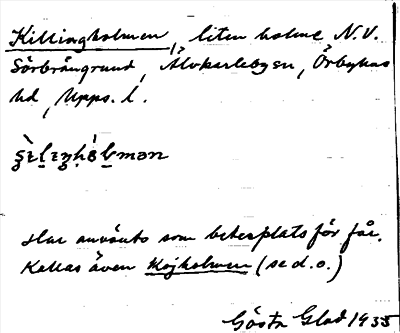 Killingholmen, liten holme N.V.
Sörbrängrund, Älvkarlebysn, Örbyhus
hd, Upps. l.
Har använts som betesplats för får.
Kallas även Kojholmen (se d.o.)
Gösta Glad 1935